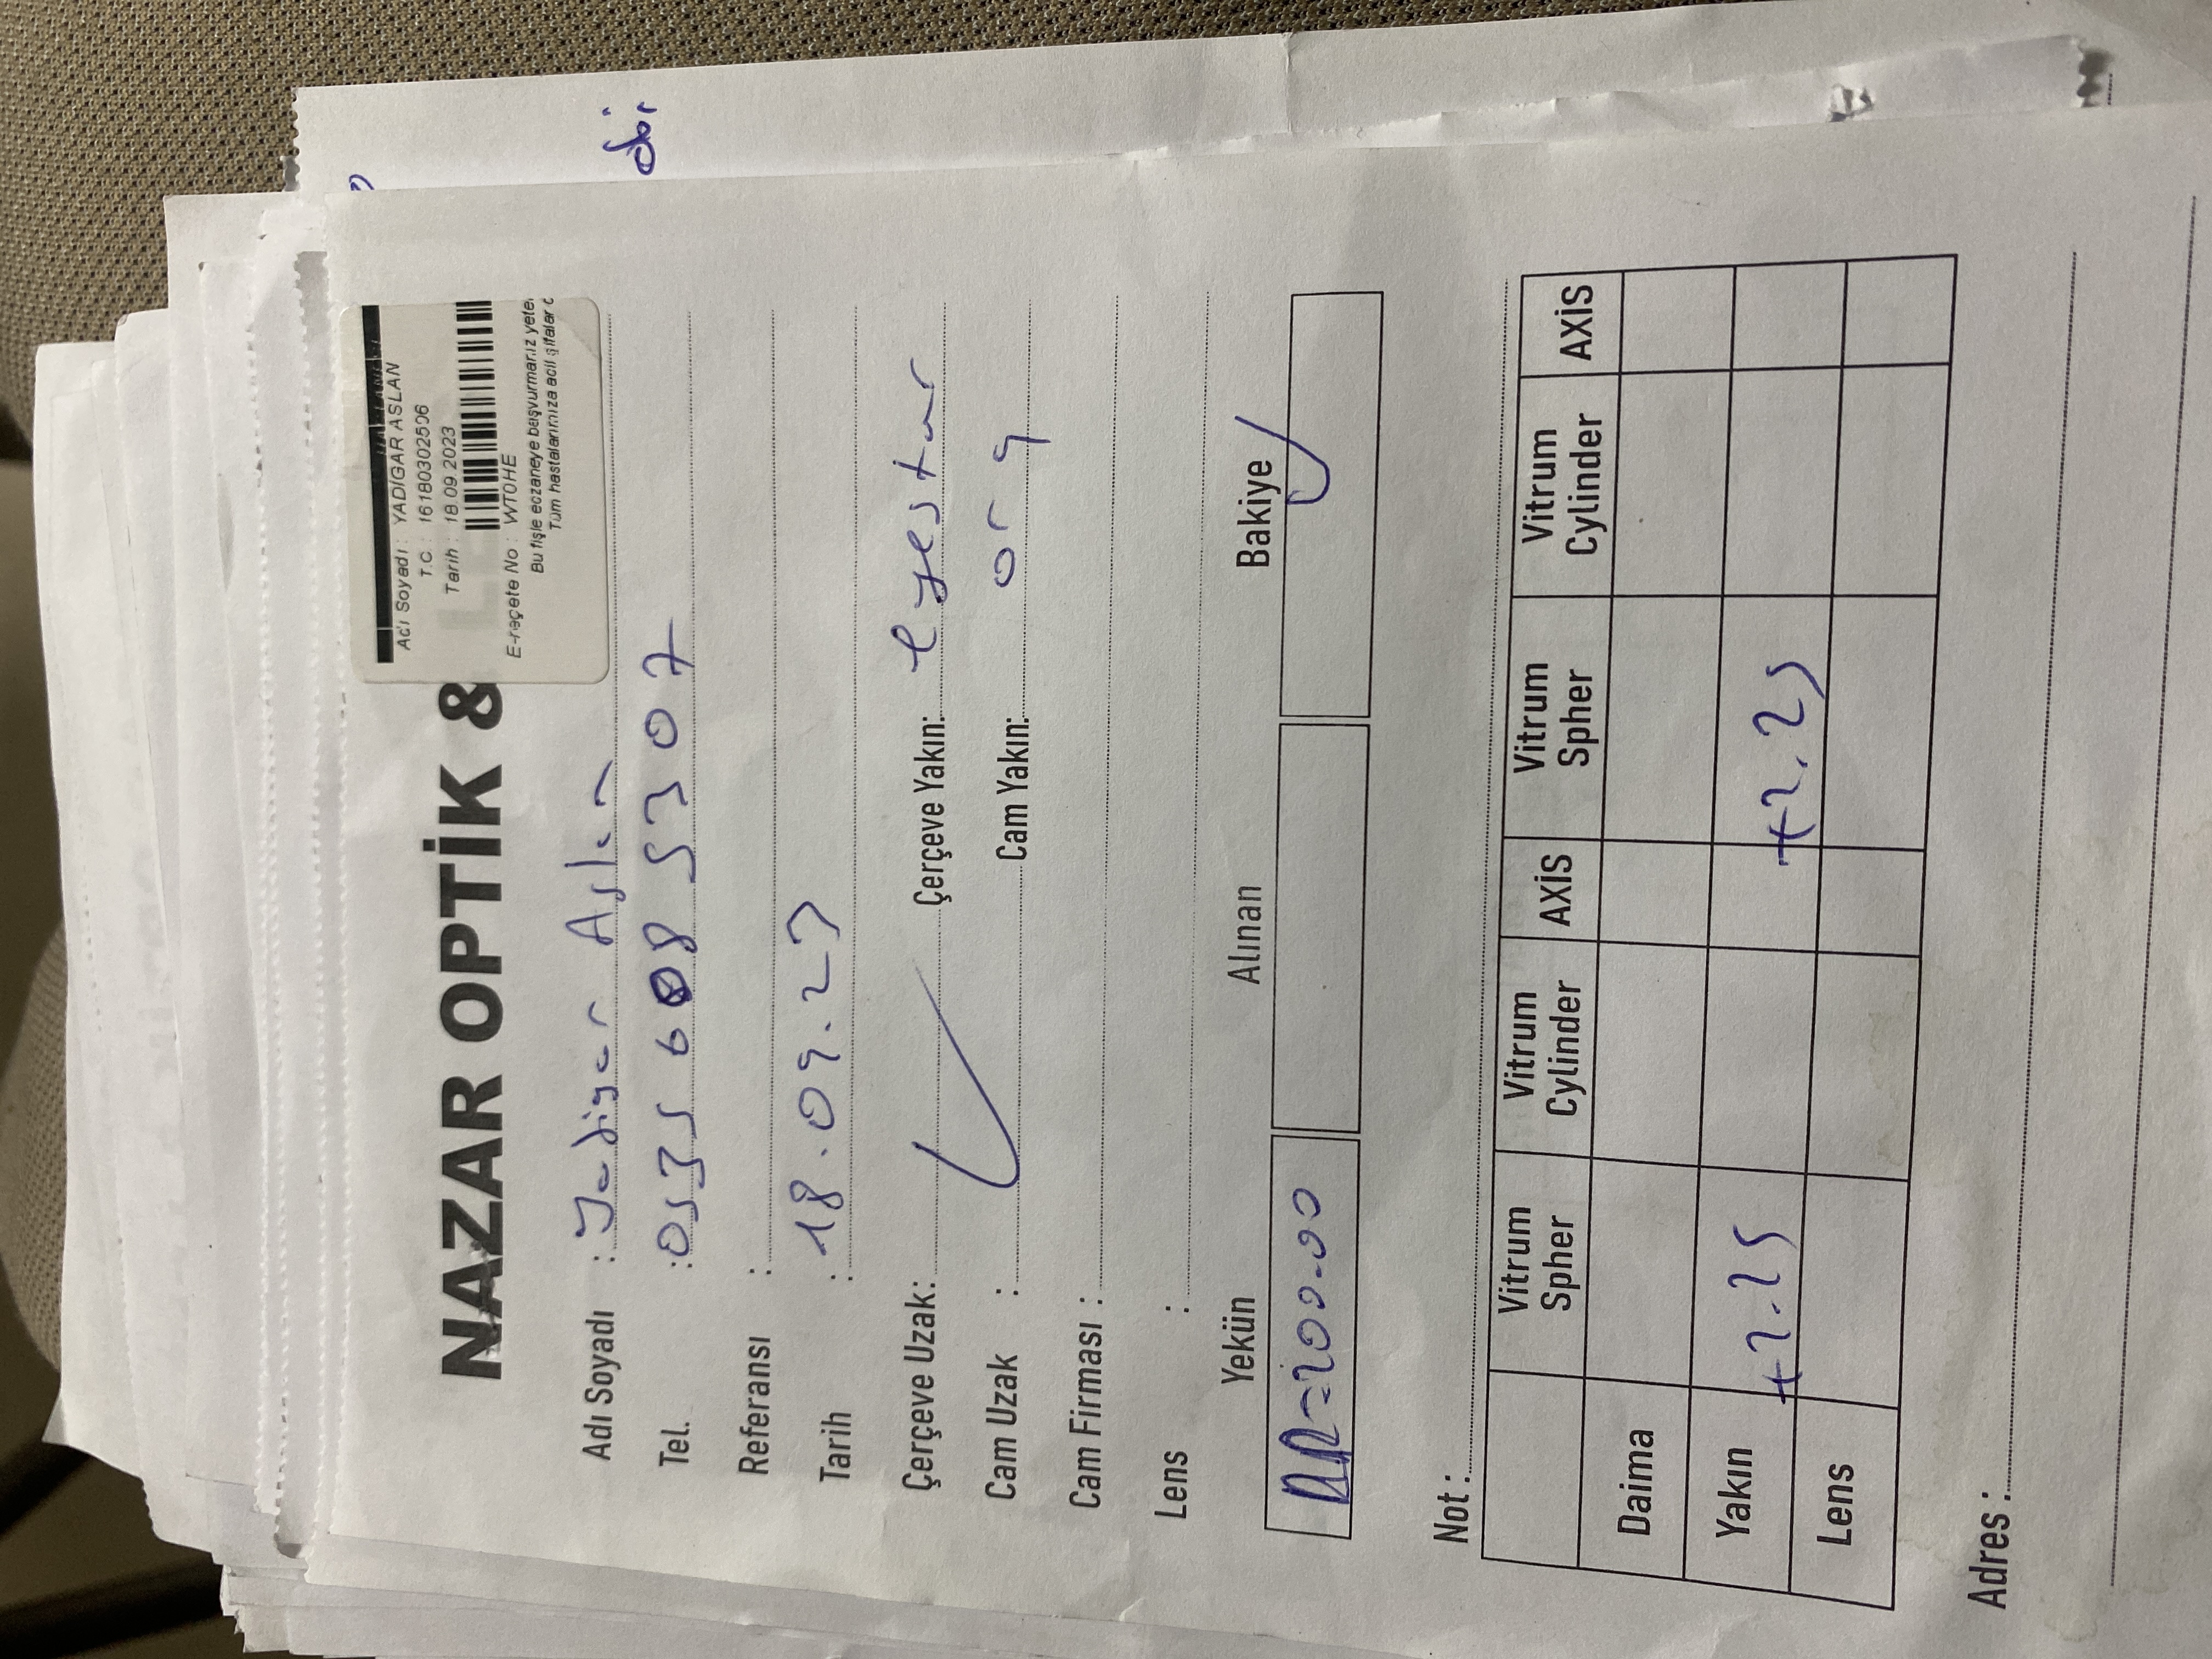 Adı Soyadı : YADİGAR ASLAN
T.C. : 16180302506
Tarih : 18.09.2023
NAZAR OPTİK &
E-reçete No : WT0HE
Bu fişle eczaneye başvurmanız yete
Tüm hastalarımıza acil şifalar d
Adı Soyadı : Yadigar Aslan
Tel. : 0535 608 5307
Referansı :
Tarih : 18.09.23
Çerçeve Uzak: Çerçeve Yakın: eyestar
Cam Uzak : Cam Yakın: org
Cam Firması :
Lens :
Yekün Alınan Bakiye
=200.00
Not :
Vitrum Spher Vitrum Cylinder AXİS Vitrum Spher Vitrum Cylinder AXİS
Daima
Yakın +2.25 +2.25
Lens
Adres :